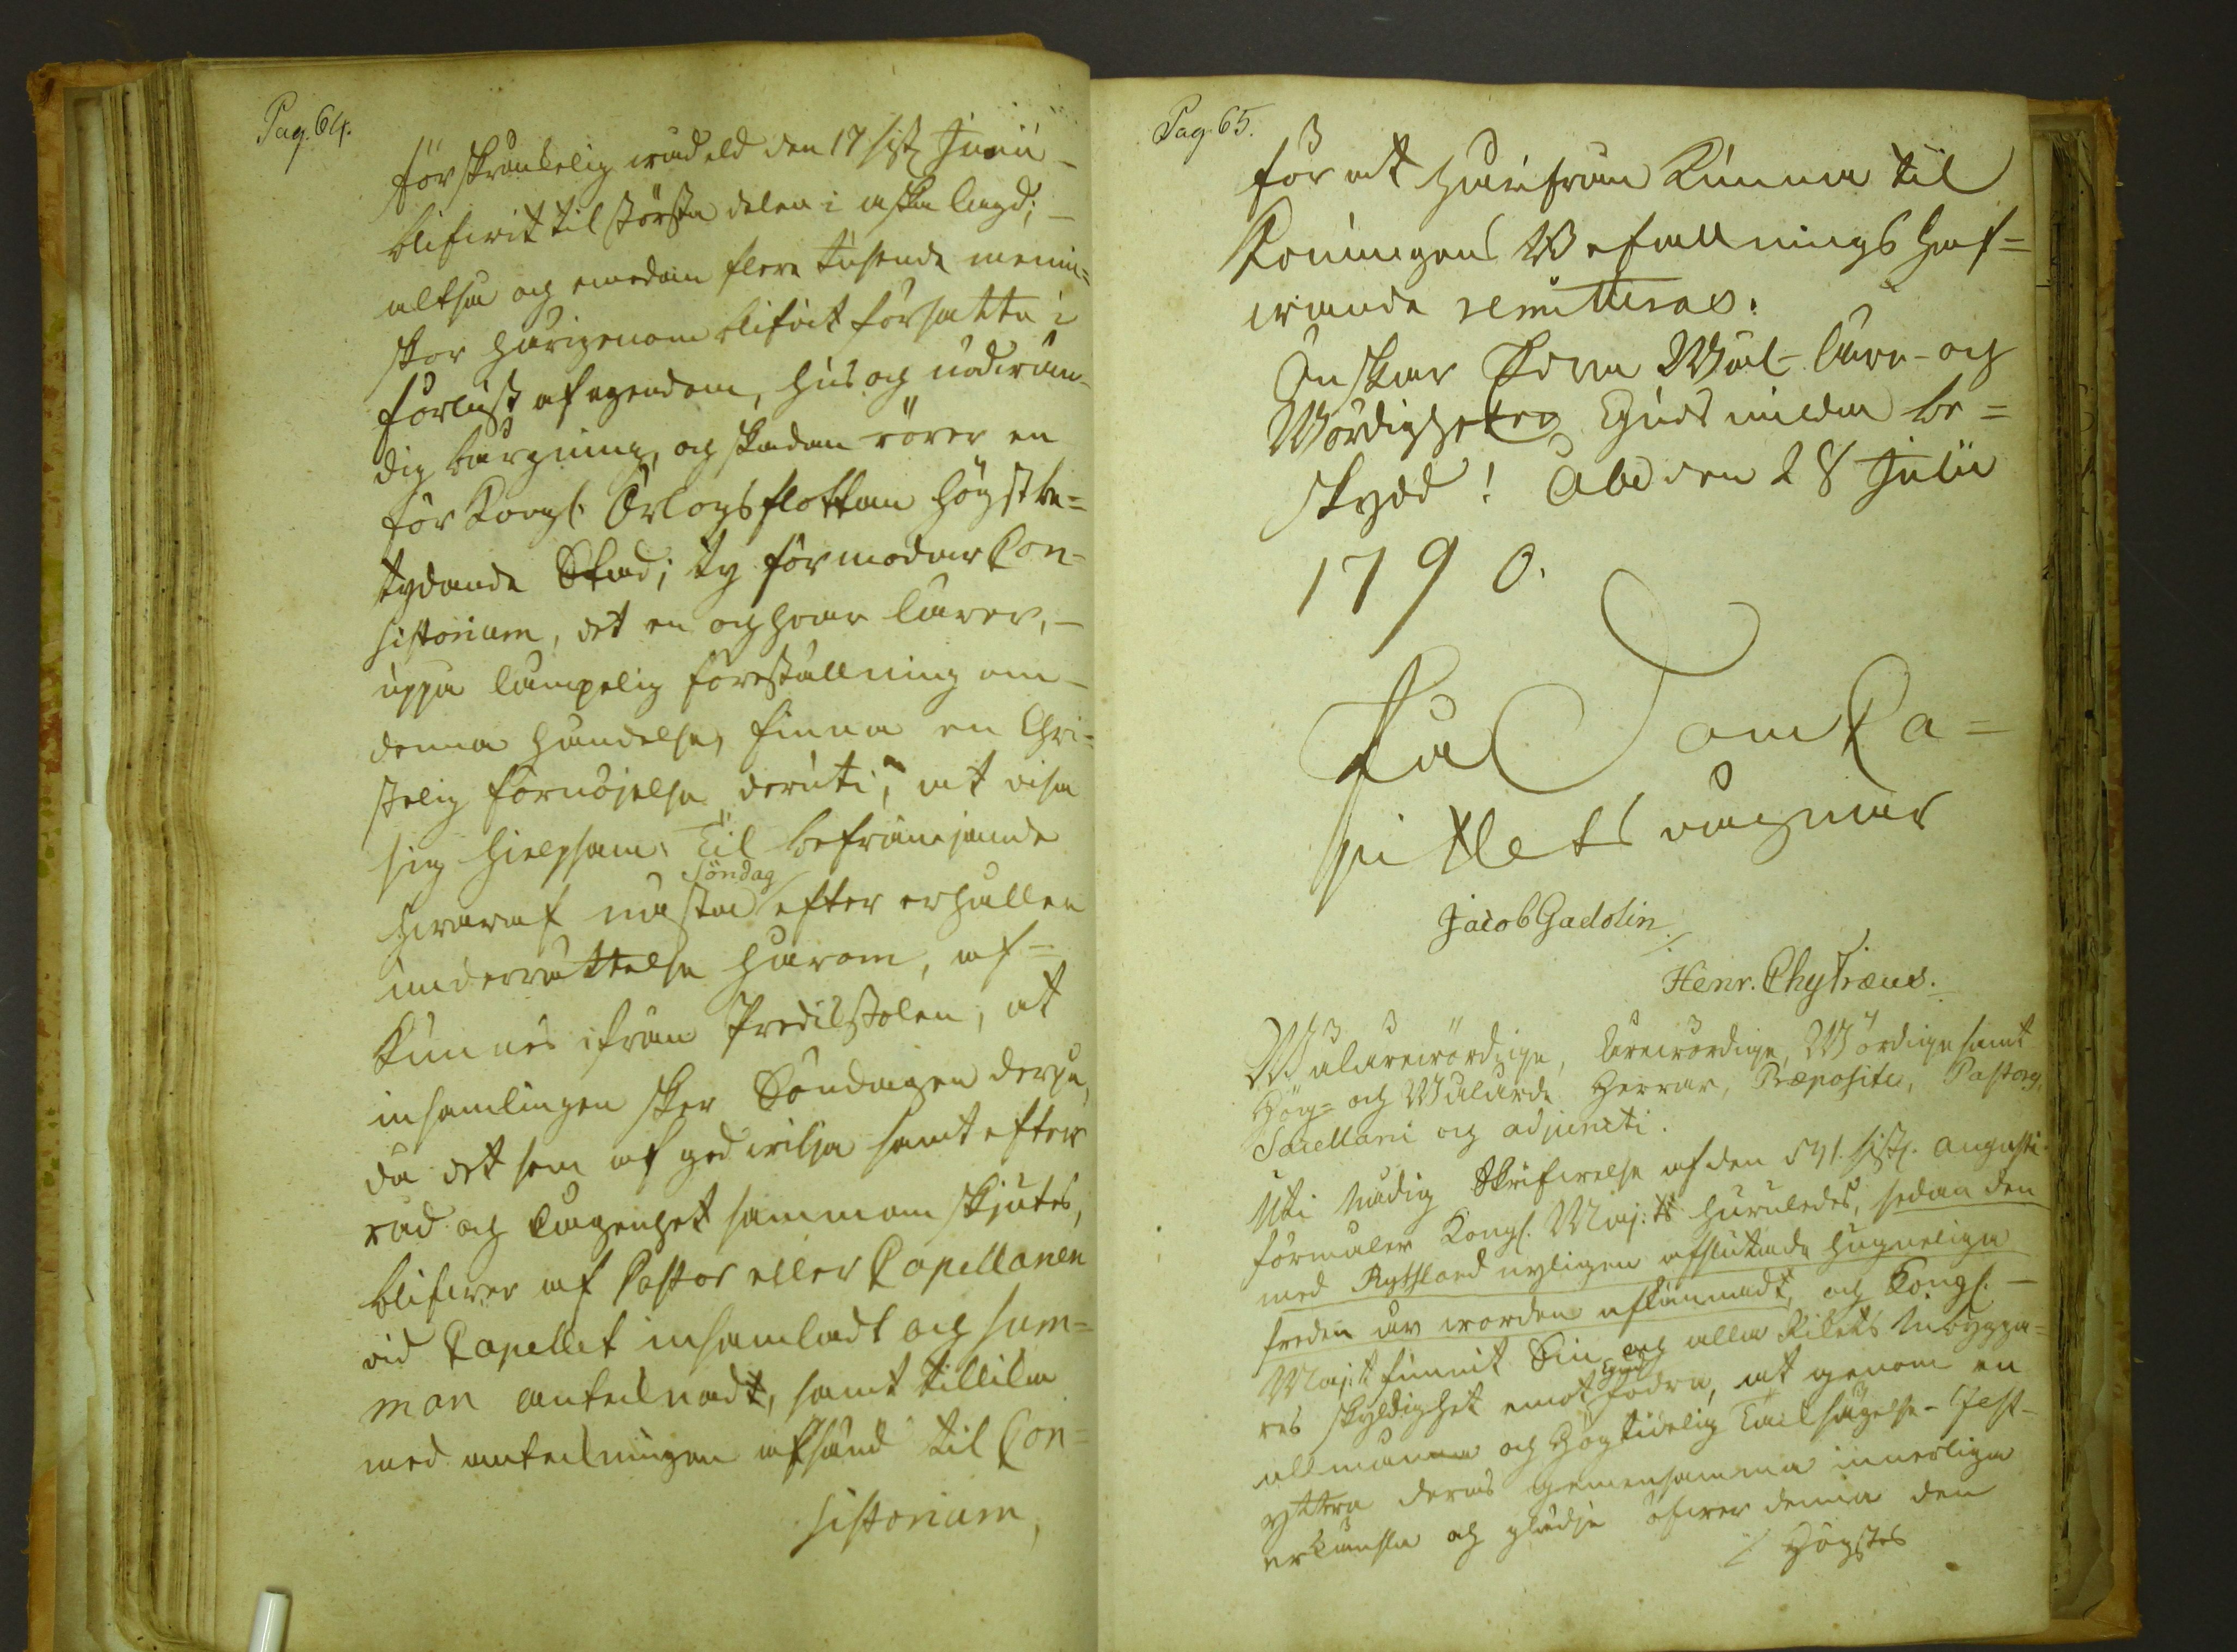 Pag. 64.
förskräckelig wådeld den 17 sist. Junii
blifwit til största delen i aska lagd;
altså och emedan flere tusende menni=
skor härigenom blifvit försatte i
förlust af egendom, hus och nödvän-
dig bärgning, och skadan rörer en
för Kongl. Örlogsflottan högst be=
tydande Stad; ty förmodar Con-
sistorium, det en och hvar lärer,
uppå lämpelig föreställning om
denna händelse, finna en Chri-
stelig förnöjelse deruti, at visa
sig hielpsam. Til befrämjande
söndag
hwaraf nästa efter erhållen
underrättelse härom, af=
kunnes ifrån Predikstolen, at
insamlingen sker Söndagen derpå,
då det som af god wilja samt efter
råd och lägenhet sammanskjutes,
blifwer af Pastor eller Capellanen
vid Capellet insamladt och sum=
man antecknadt, samt tillika
med anteckningen afsänd til Con=
sistorium,
Pag. 65.
för at härifrån kunna til
Konungens Befallningshaf=
wande remitteras.
Önskar Edra Wäl-Ärev- och
Wördigheter Guds milda be=
skydd! Åbo den 28 Julii
1790.
På DomCa=
pitlets vägnar
Jacob Gadolin
Henr. Chytræus.
Wälärewördige, Ärewördige, Wördige samt
Hög= och Wällärde Herrar, Præpositi, Pastorer,
Sacellani och adjuncti.
Uti Nådig Skrifwelse af den sistl. Augusti
förmäler Kongl. Maj:tt huruledes, sedan den
med Ryssland nyligen afslutade hugneliga
freden är worden aflämnadt, och Kongl.
Maj:tt funnit Sin och alla Rikets Inbygga=
Gud
res skyldighet emot fodra, at genom en
allmänna och Högtidelig Tacksägelse-Fest
yttra deras gemensamma innerliga
erkänsla och glädje öfwer denna den
Högstes